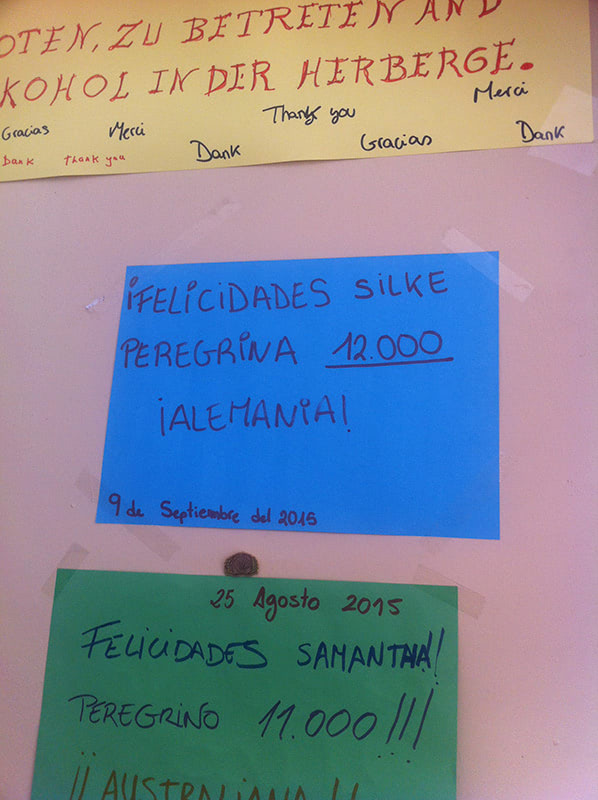 OTEN, ZU BETRETEN AND
KOHOL IN DER HERBERGE.
Gracias Merci Thank you Merci
Dank Thank you Dank Gracias Dank
¡FELICIDADES SILKE
PEREGRINA 12.000
¡ALEMANIA!
9 de Septiembre del 2015
25 Agosto 2015
FELICIDADES SAMANTHA!!
PEREGRINO 11.000!!!
¡¡AUSTRALIANA!!